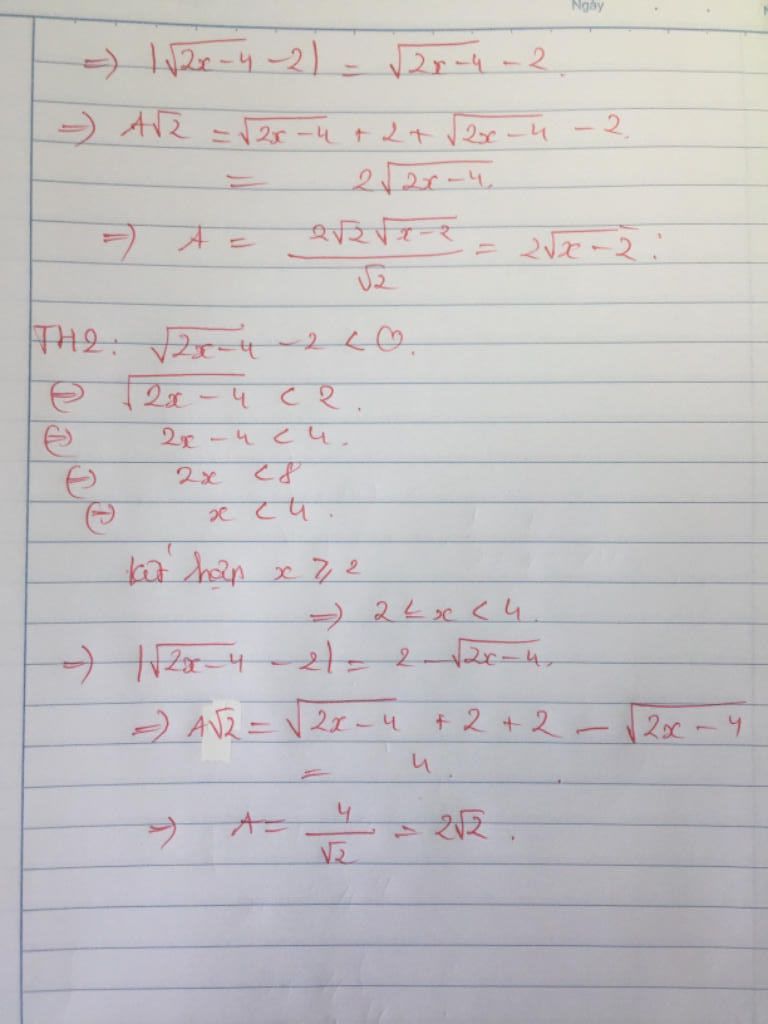 Ngày
=> |√(2x-4) - 2| = √(2x-4) - 2.
=> A√2 = √(2x-4) + 2 + √(2x-4) - 2.
= 2√(2x-4).
=> A = (2√2 √(x-2))/√2 = 2√(x-2) :
TH2: √(2x-4) - 2 < 0.
<=> √(2x-4) < 2.
<=> 2x-4 < 4.
<=> 2x < 8
<=> x < 4.
kết hợp x ≥ 2
=> 2 ≤ x < 4.
=> |√(2x-4) - 2| = 2 - √(2x-4).
=> A√2 = √(2x-4) + 2 + 2 - √(2x-4)
= 4.
=> A = 4/√2 = 2√2.